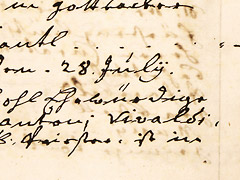 in gottsacker
den. 28 July.
wohl Ehrwürdige
Antoni Vivaldi,
Priester. ist in